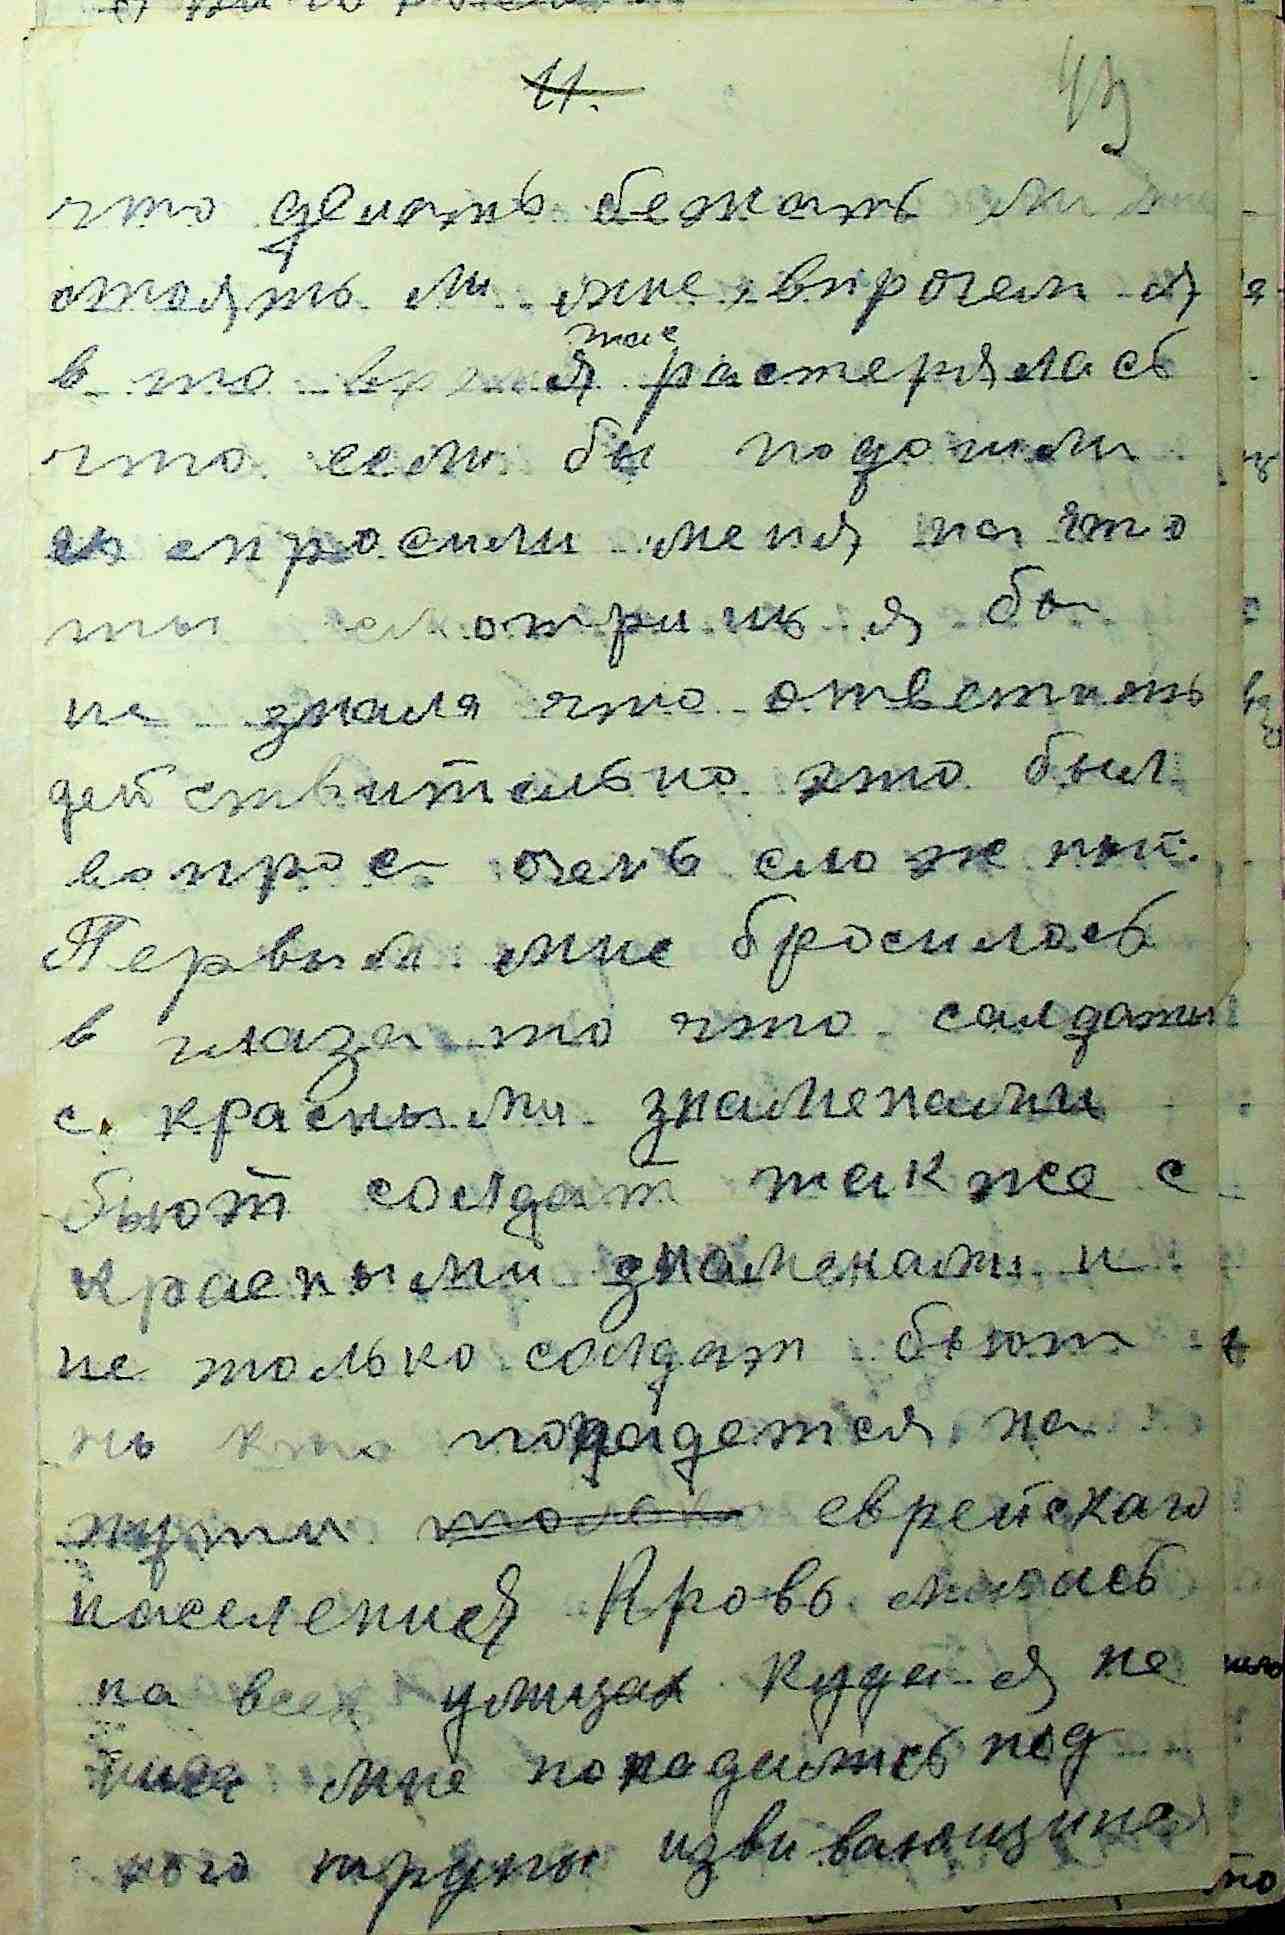 11.
43
что делать бежать ли
стоять ли мне впрочем я
в то время так растерялась
что если бы подошли
и спросили меня на что
ты смотришь я бы
не знала что ответить
действительно это был
вопрос очень сложный.
Первым мне бросилось
в глаза то что салдаты
с красными знаменами
бьют солдат также с
красными знаменами и
не только солдат бьют
но кто попадется на
пути только еврейскаго
населения Кровь лилась
на всех улицах куда я не
шла мне попадались под
ного трупы извивающиеся